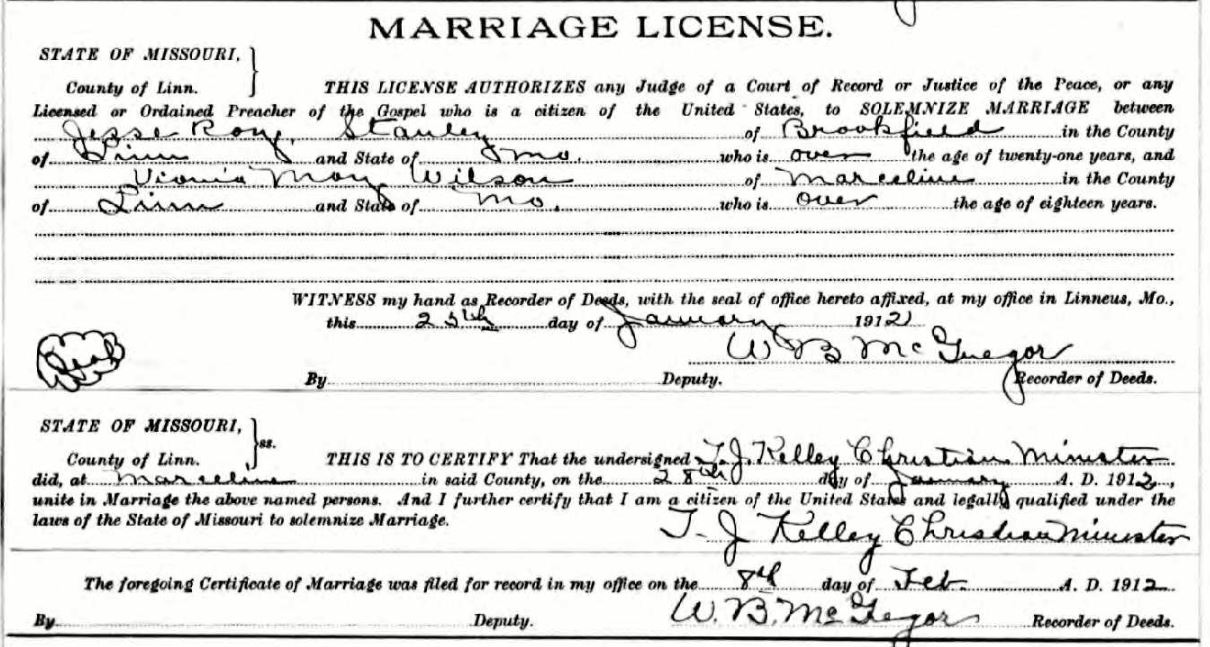 MARRIAGE LICENSE.
STATE OF MISSOURI,
County of Linn. THIS LICENSE AUTHORIZES any Judge of a Court of Record or Justice of the Peace, or any
Licensed or Ordained Preacher of the Gospel who is a citizen of the United States, to SOLEMNIZE MARRIAGE between
Jesse Roy Stanley of Brookfield in the County
of Linn and State of Mo. who is over the age of twenty-one years, and
May Wilson of Marceline in the County
of Linn and State of Mo. who is over the age of eighteen years.
WITNESS my hand as Recorder of Deeds, with the seal of office hereto affixed, at my office in Linneus, Mo.,
this 25th day of January 1912
Seal W B McGregor
By Deputy. Recorder of Deeds.
STATE OF MISSOURI,
ss.
County of Linn. THIS IS TO CERTIFY That the undersigned T. J. Kelley Christian Minister
did, at Marceline in said County, on the 28th day of January A. D. 1912,
unite in Marriage the above named persons. And I further certify that I am a citizen of the United States and legally qualified under the
laws of the State of Missouri to solemnize Marriage.
T. J Kelley Christian Minister
The foregoing Certificate of Marriage was filed for record in my office on the 8th day of Feb. A. D. 1912
W. B. McGregor
By Deputy. Recorder of Deeds.